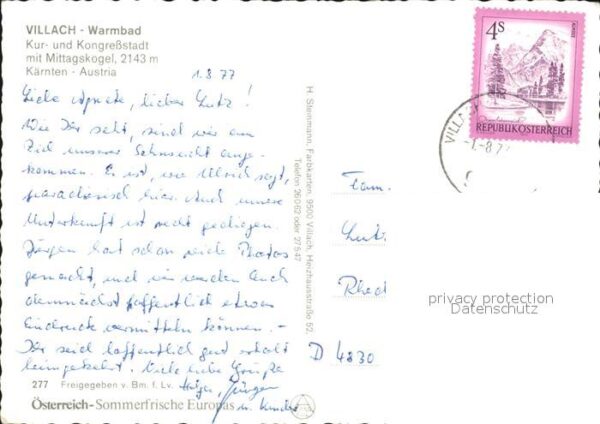 VILLACH - Warmbad
Kur- und Kongreßstadt
mit Mittagskogel, 2143 m
Kärnten - Austria
1.8.77
Liebe Agnete, lieber Lutz!
Wie Ihr seht, sind wir am
Ziel unserer Sehnsucht ange-
kommen. Es ist, wie Ulrich sagt,
paradiesisch hier. Auch unsere
Unterkunft ist recht gediegen.
Jürgen hat schon viele Photos
gemacht, und wir werden Euch
demnächst hoffentlich etwas
Eindruck vermitteln können. -
Ihr seid hoffentlich gut erholt
heimgekehrt. Viele liebe Grüße
Jürgen
u. Kinder
277 Freigegeben v. Bm. f. Lv.
Österreich-Sommerfrische Europas
H. Stammann, Farbkarten, 9500 Villach, Heizhausstraße 62
Telefon 26062 oder 27547
4S
REPUBLIK ÖSTERREICH
VILLACH
-1.-8.77
Fam.
Lutz
Rhed
D 4830
privacy protection
Datenschutz